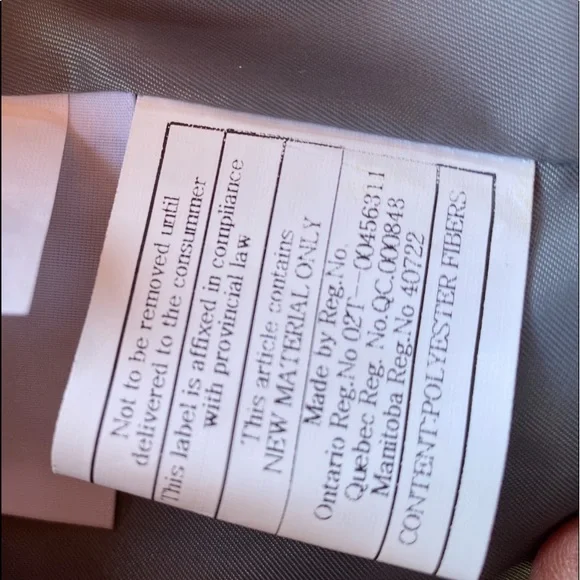 Not to be removed until
delivered to the consummer
This label is affixed in compliance
with provincial law
This article contains
NEW MATERIAL ONLY
Made by Reg.No.
Ontario Reg.No 02T--00456311
Quebec Reg. No.QC.000848
Manitoba Reg.No 40722
CONTENT:POLYESTER FIBERS